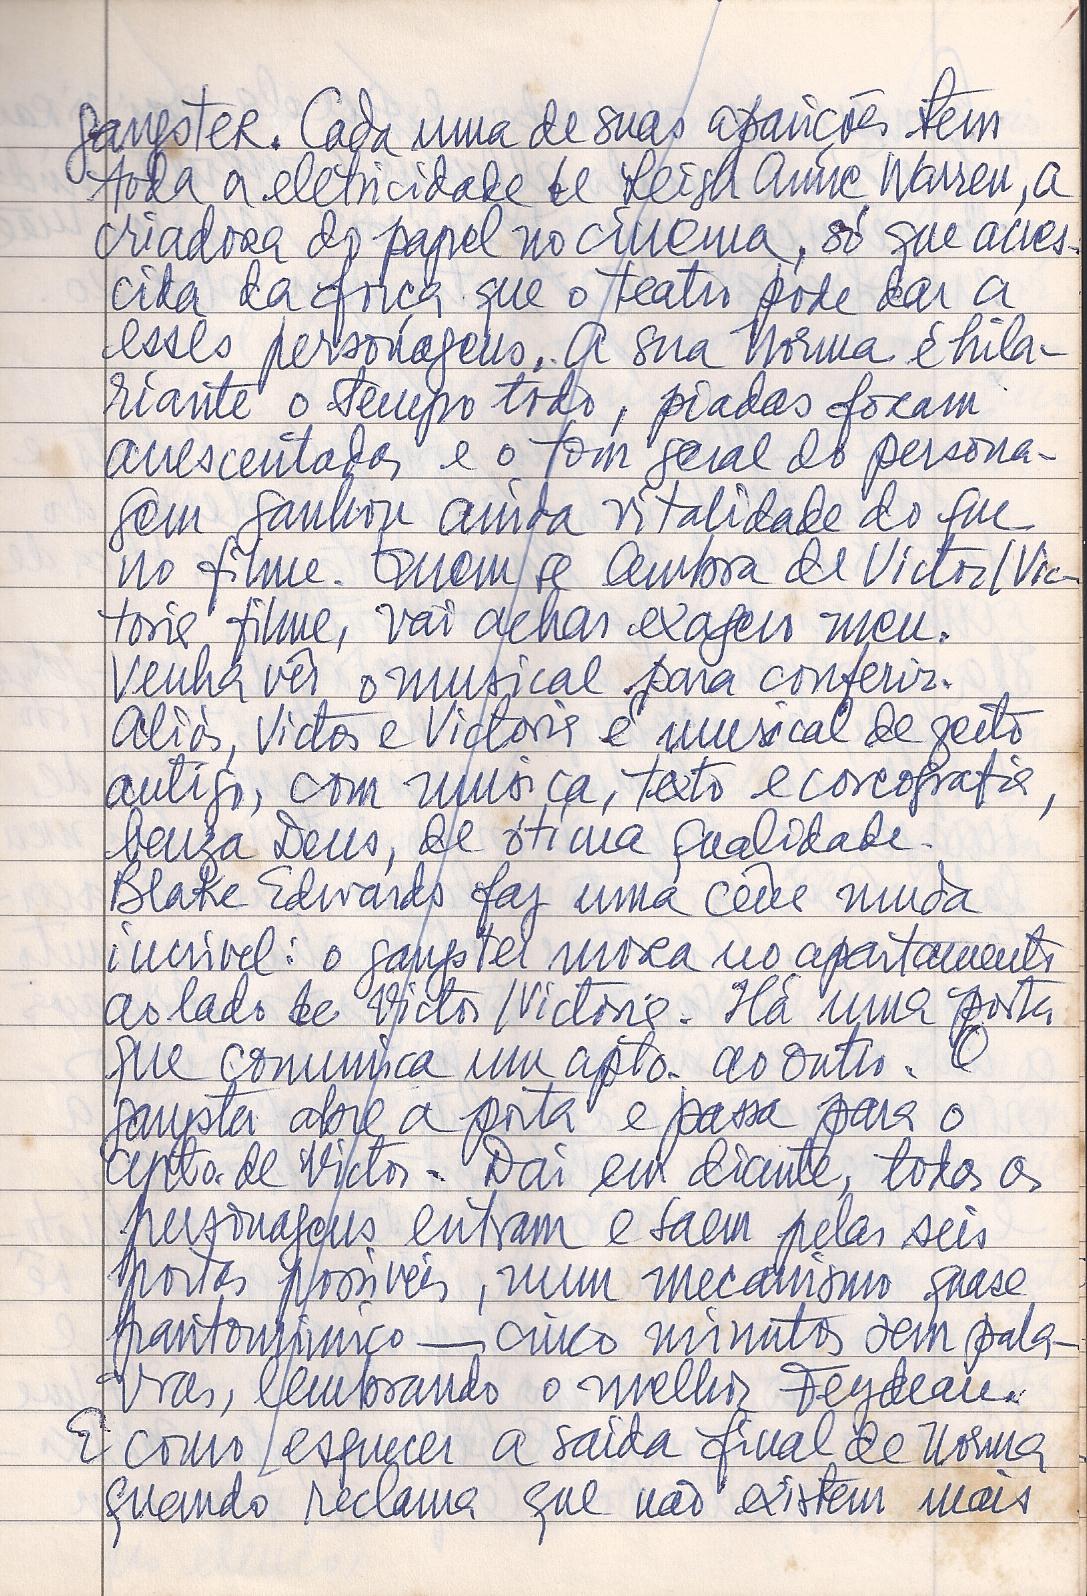 gangster. Cada uma de suas aparições tem
toda a eletricidade de Leigh Anne Warren, a
criadora do papel no cinema, só que acres-
cida da força que o teatro pode dar a
esses personagens. A sua Norma é hila-
riante o tempo todo, piadas foram
acrescentadas e o tom geral do persona-
gem ganhou ainda vitalidade do que
no filme. Quem se lembra de Victor/Vic-
toria filme, vai achar exagero meu.
Venha vêr o musical para conferir.
Aliás, Victor e Victoria é musical de jeito
antigo, com música, texto e coreografia,
benza Deus, de ótima qualidade.
Blake Edwards faz uma cena muda
incrivel: o gangster mora no apartamento
ao lado de Victor/Victoria. Há uma porta
que comunica um apto. ao outro. O
gangster abre a porta e passa para o
apto. de Victor. Daí em diante, todos os
personagens entram e saem pelas seis
portas possíveis, num mecanismo quase
pantomimico — cinco minutos sem pala-
vras, lembrando o melhor Feydeau.
E como esquecer a saida final de Norma
quando reclama que não existem mais